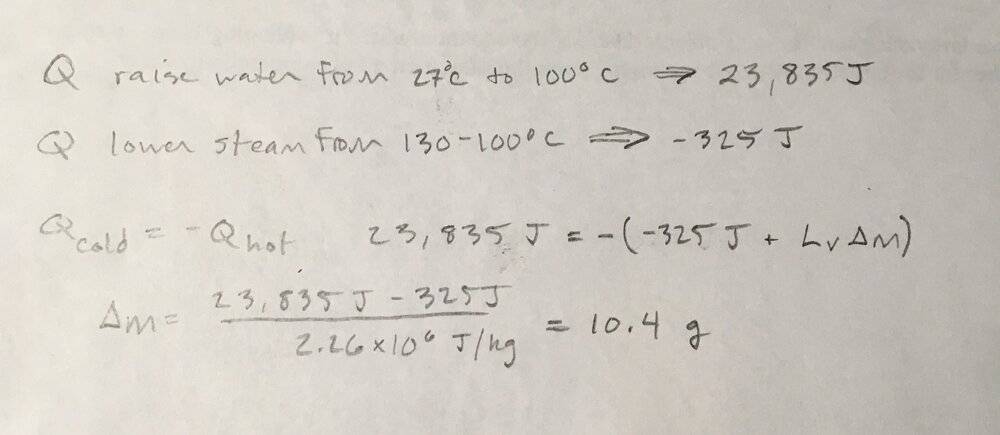 Q raise water from 27°C to 100°C ⇒ 23,835 J
Q lower steam from 130-100°C ⇒ -325 J
Qcold = -Qhot 23,835 J = -(-325 J + Lv Δm)
Δm = (23,835 J - 325 J) / (2.26×10⁶ J/kg) = 10.4 g